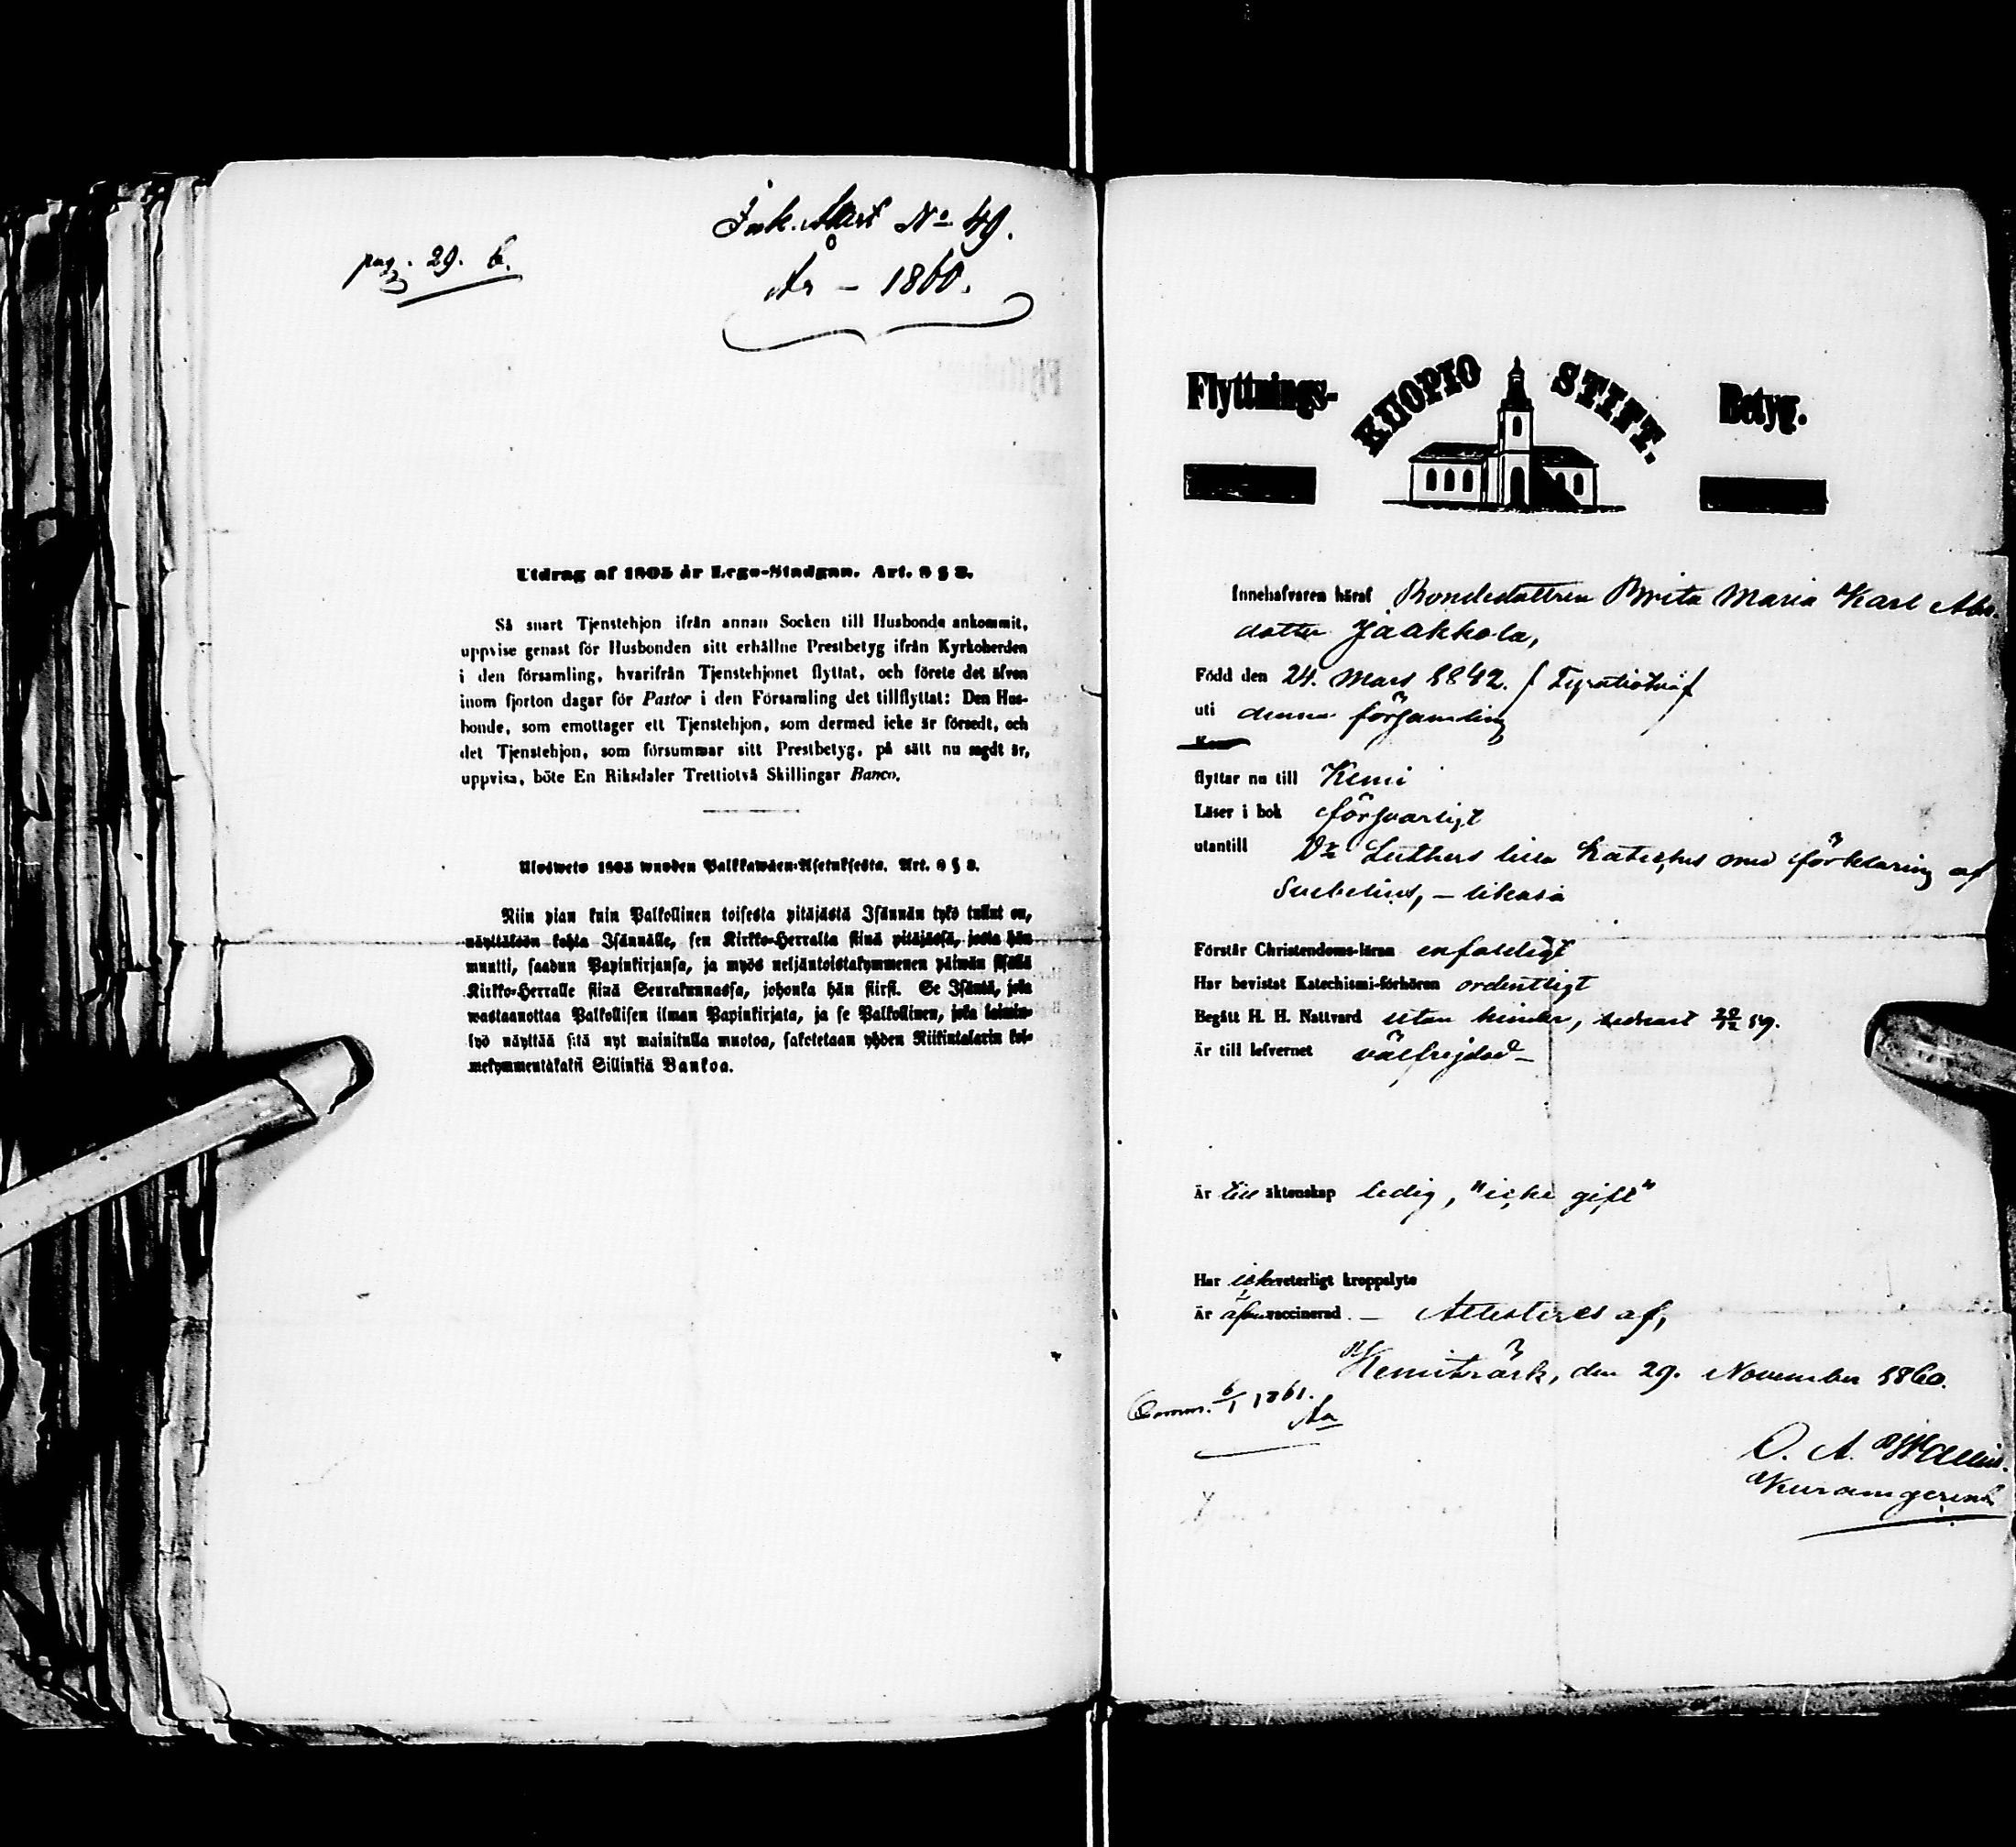 pag. 29. b.
Ink. Attest No 49.
År – 1860.
Utdrag af 1805 år Lego-Stadgan. Art. 8 § 3.
Så snart Tjenstehjon ifrån annan Socken till Husbonde ankommit,
uppvise genast för Husbonden sitt erhållne Prestbetyg ifrån Kyrkoherden
i den församling, hvarifrån Tjenstehjonet flyttat, och förete det äfven
inom fjorton dagar för Pastor i den Församling det tillflyttat: Den Hus-
bonde, som emottager ett Tjenstehjon, som dermed icke är försedt, och
det Tjenstehjon, som försummar sitt Prestbetyg, på sätt nu sagdt är,
uppvisa, böte En Riksdaler Trettiotvå Skillingar Banco.
Ulosweto 1805 wuoden Palkkawäen-Asetuksesta. Art. 8 § 3.
Niin pian kuin Palkollinen toisesta pitäjästä Isännän tykö tullut on,
näyttäköön kohta Isännälle, sen Kirkko-Herralta siinä pitäjässä, josta hän
muutti, saadun Papinkirjansa, ja myös neljäntoistakymmenen päiwän sisällä
Kirkko-Herralle siinä Seurakunnassa, johonka hän siirsi. Se Isäntä, joka
wastaanottaa Palkollisen ilman Papinkirjata, ja se Palkollinen, joka laimin-
lyö näyttää sitä nyt mainitulla muotoa, sakotetaan yhden Riikintalarin kol-
mekymmentäkaksi Sillinkiä Bankoa.
Flyttnings- KUOPIO STIFT. Betyg.
Innehafvaren häraf Bondedottren Brita Maria Karl Abr.
dotter Jaakkola,
Född den 24. Mars 1842.
uti denna församling
flyttar nu till Kemi
Läser i bok försvarligt
utantill Dr Luthers lilla Kateches om förklaring af
Svebelius, – likaså
Förstår Christendoms-läran enfaldigt
Har bevistat Katechismi-förhören ordentligt
Begått H. H. Nattvard utan hinder, sednast 20/12 59.
Är till lefvernet välfrejdad –
Är till äktenskap ledig, "icke gift"
Har icke veterligt kroppslyte
Är äfven vaccinerad. – Attesteras af,
Kemiträsk, den 29. November 1860.
6/1 1861.
O. A.